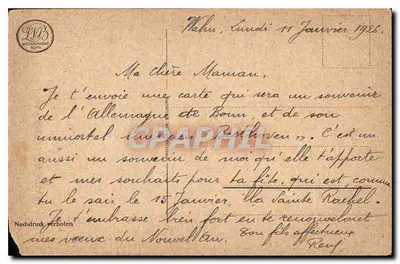 Wahn, Lundi 11 Janvier 1926.
Ma Chère Maman,
Je t'envoie une carte qui sera un souvenir
de l'Allemagne de Bonn, et de son
immortel musicien "Beethoven". C'est
aussi un souvenir de moi qui elle t'apporte
et mes souhaits pour ta fête, qui est, comme
tu le sais le 15 Janvier, la Sainte Rachel.
Je t'embrasse bien fort en te renouvelant
mes vœux du Nouvel An.
Ton fils affectueux
René
Nachdruck verboten
CPARAMA